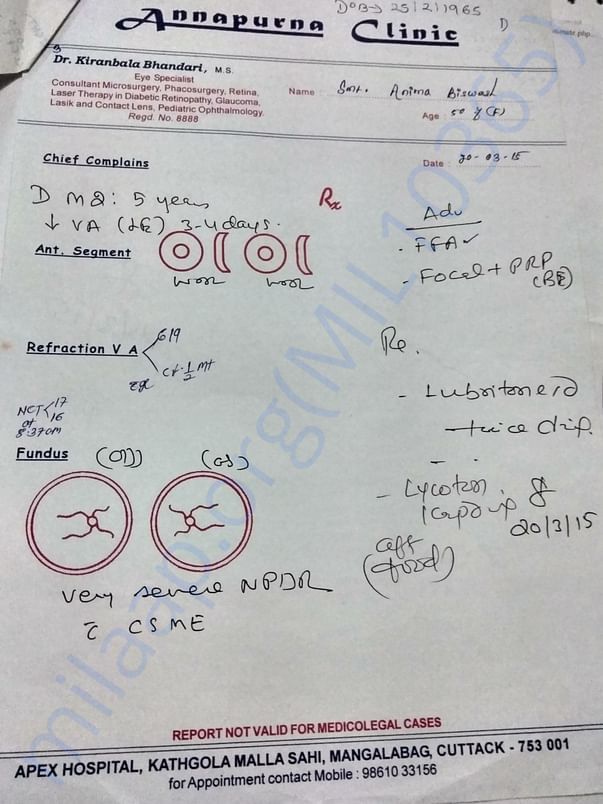 DOB→ 25/2/1965
Annapurna Clinic
Dr. Kiranbala Bhandari, M.S.
Eye Specialist
Consultant Microsurgery, Phacosurgery, Retina,
Laser Therapy in Diabetic Retinopathy, Glaucoma,
Lasik and Contact Lens, Pediatric Ophthalmology.
Regd. No. 8888
Name : Smt. Anima Biswash
Age : 50 y (F)
Date : 20-03-15
Chief Complains
D M : 5 years
↓ VA (LE) 3-4 days.
Rx
Ant. Segment
Adv
- FFA ✓
- Focal + PRP
(BE)
Refraction V A
6/9
Cf. 1/2 mt
NCT 17
16
at
8:37am
Re.
- Lubritone
twice
Fundus
(OD)
(OS)
20/3/15
(food)
very severe NPDR
c̄ CSME
milaap.org(MIL 10365)
REPORT NOT VALID FOR MEDICOLEGAL CASES
APEX HOSPITAL, KATHGOLA MALLA SAHI, MANGALABAG, CUTTACK - 753 001
for Appointment contact Mobile : 98610 33156